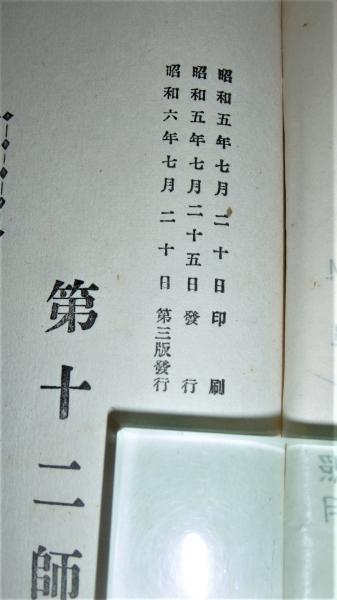 昭和五年七月二十日印刷
昭和五年七月二十五日發行
昭和六年七月二十日第三版發行
第十二師